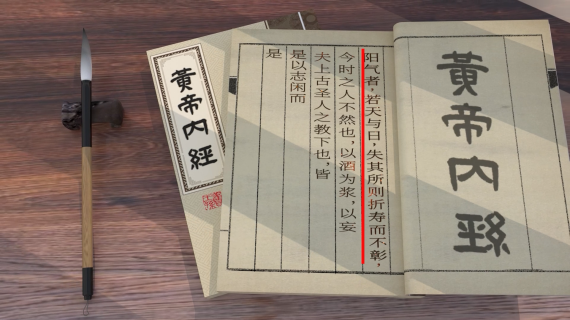 黃帝內經
阳气者,若天与日,失其所则折寿而不彰,
今时之人不然也,以酒为浆,以妄
夫上古圣人之教下也,皆
是以志闲而
是
黃帝內經